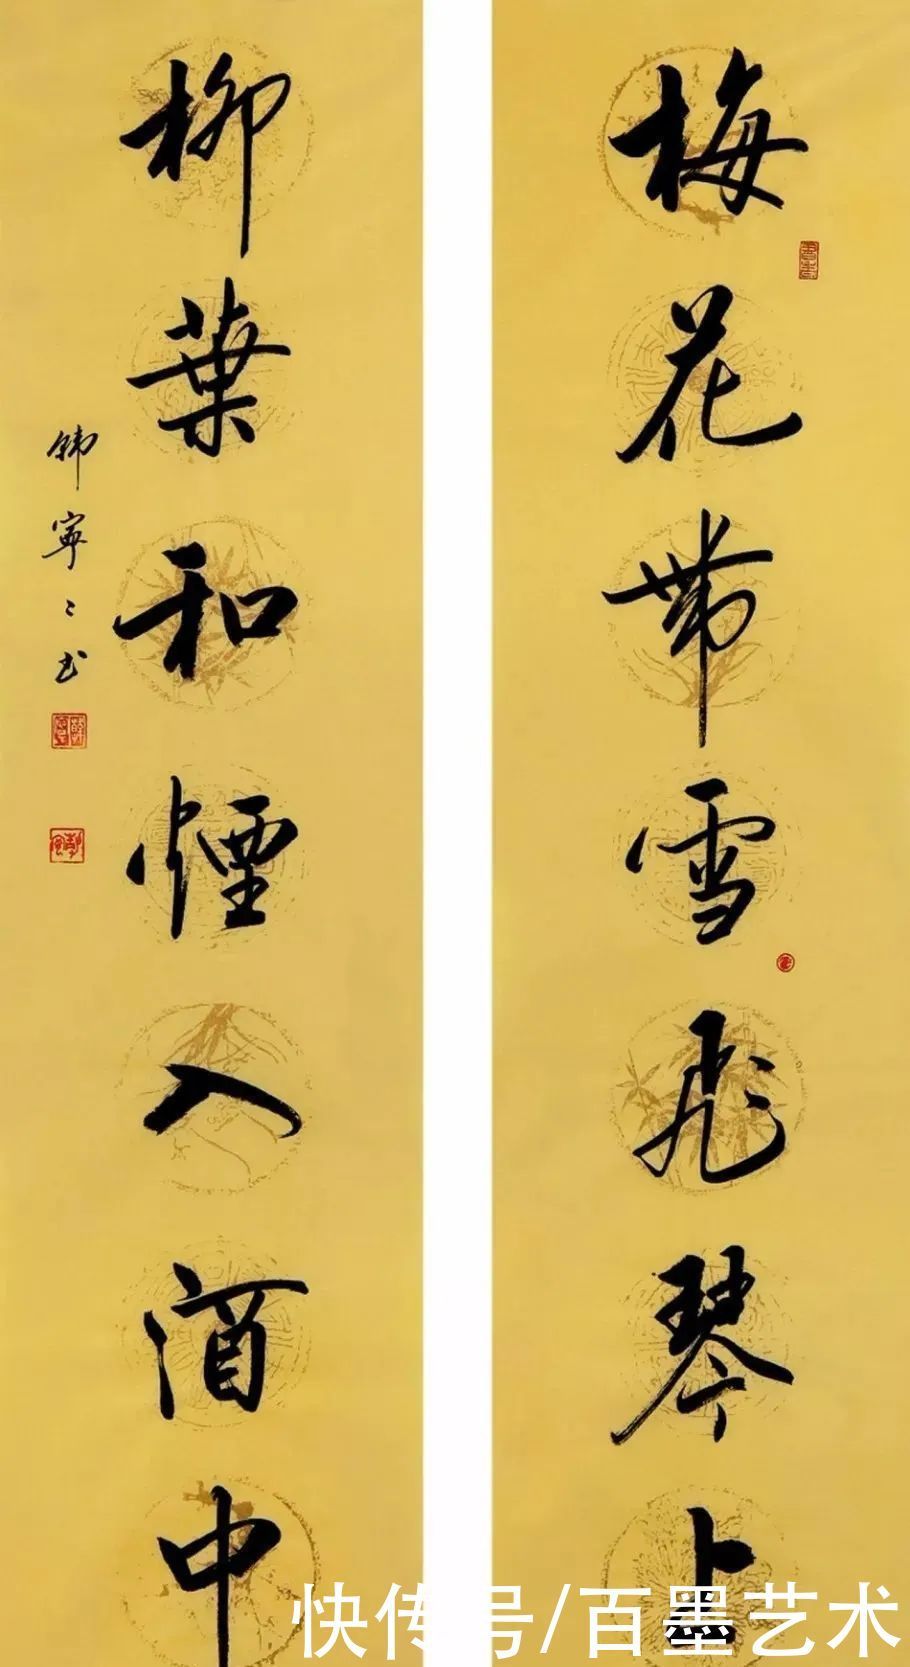 梅花帶雪飛琴上
柳葉和煙入酒中
韩寧〻书
快传号/百墨艺术